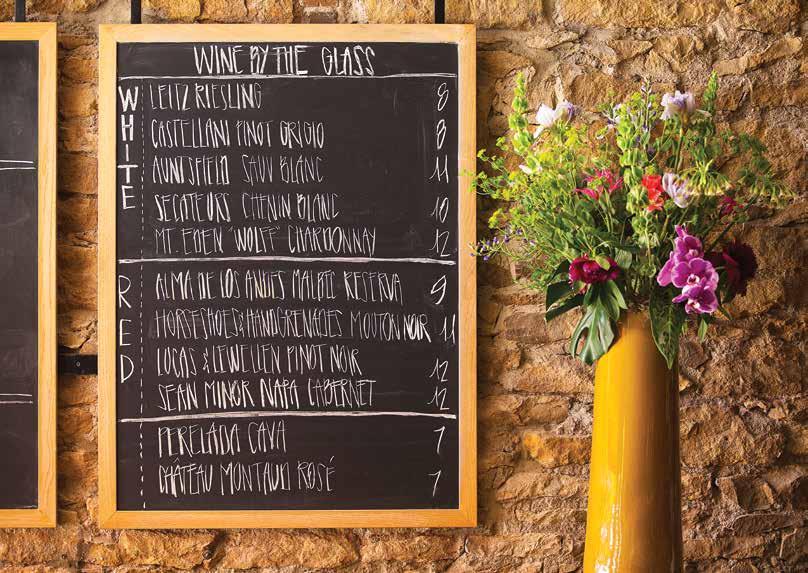 WINE BY THE GLASS
WHITE
LEITZ RIESLING 8
CASTELLANI PINOT GRIGIO 8
AUNTSFIELD SAUV BLANC 11
SECATEURS CHENIN BLANC 10
MT. EDEN "WOLFF" CHARDONNAY 12
RED
ALMA DE LOS ANDES MALBEC RESERVA 9
HORSESHOES & HANDGRENADES MOUTON NOIR 11
LUCAS & LEWELLEN PINOT NOIR 12
SEAN MINOR NAPA CABERNET 12
PERELADA CAVA 7
CHÂTEAU MONTAUD ROSÉ 7